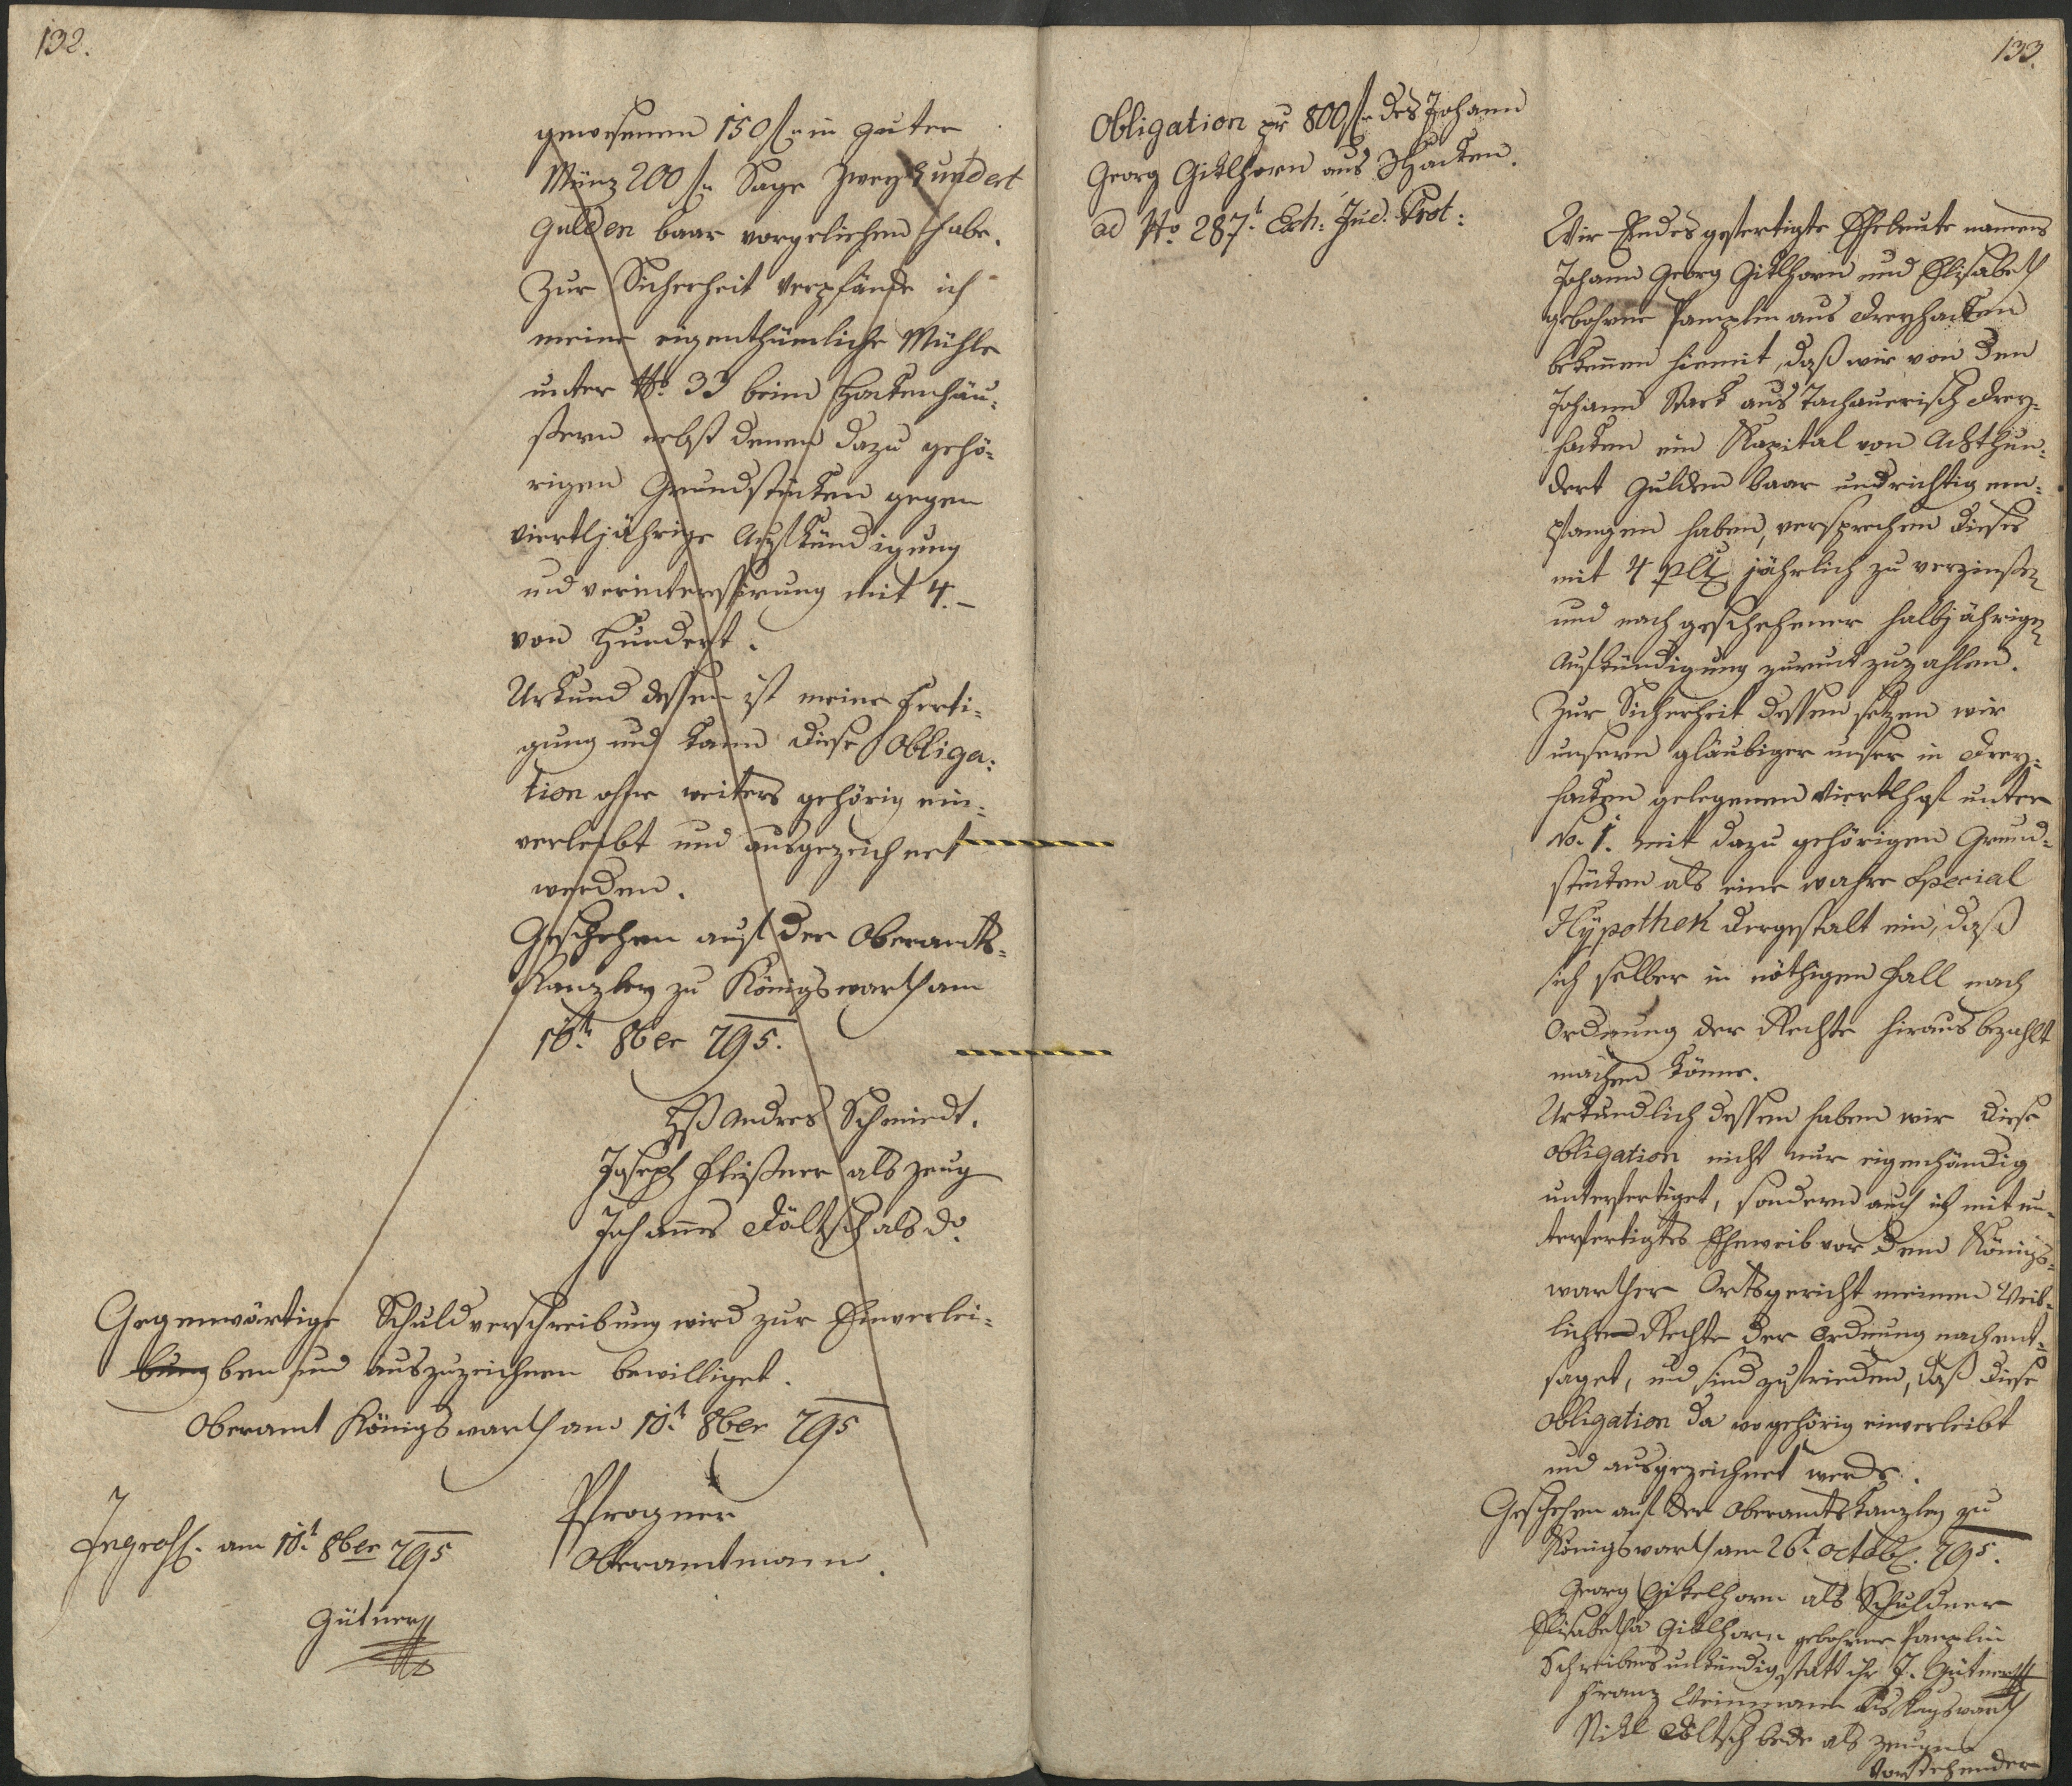 132.
gewesenen 150 f in guter
Münz 200 f Sage Zweyhundert
Gulden baar vorgeliehen habe.
Zur Sicherheit verpfände ich
meine eigenthümliche Mühle
unter No. 33 beim Hackenhäu-
ßern nebst denen dazu gehö-
rigen Grundstücken gegen
viertljährige Aufkündigung
und verinteressirung mit 4.-
von Hundert.
Urkund dessen ist meine Ferti-
gung und kann diese Obliga-
tion ohne weiters gehörig ein-
verleibt und ausgezeichnet
werden.
Geschehen auf der Oberamts-
Kanzley zu Königswarth am
10t 8ber 795.
Andres Schmiedt.
Joseph Fleißner als Zeug
Johannes Döltsch als do.
Gegenwärtige Schuldverschreibung wird zur Einverlei-
bung ben und auszuzeichnen bewilliget.
Oberamt Königswarth am 10t 8ber 795
Pfrogner
Oberamtmann.
Ingross. am 10t 8ber 795
Gütner
133.
Obligation pr 800 f des Johann
Georg Gitlhorn aus 3Hacken.
ad No. 287t Exh: Jud. Prot:
Wir Endesgefertigte Eheleute namens
Johann Georg Gitlhorn und Elisabeth
gebohrne aus Dreyhacken
bekennen hiemit, daß wir von den
Johann Stark aus Tachauerisch Drey-
hacken ein Kapital von Achthun-
dert Gulden baar und richtig em-
pfangen haben, versprechen dieses
mit 4 jährlich zu verzinßen
und nach geschehener halbjährigen
Aufkündigung zuruckzuzahlen.
Zur Sicherheit dessen setzen wir
unsern gläubiger unser in Drey-
hacken gelegenen Viertlhof unter
No. 1. mit dazu gehörigen Grund-
stücken als eine wahre Special
Hypothek dergestalt ein, daß
sich selber in nöthigen Fall nach
Ordnung der Rechte hieraus bezahlt
machen könne.
Urkundlich dessen haben wir diese
Obligation nicht nur eigenhändig
unterfertiget, sondern auch ich mit un-
terfertigtes Eheweib vor dem Königs-
warther Ortsgericht meinen Weib-
lichen Rechte der Ordnung nach ent-
saget, und sind zufrieden, daß diese
Obligation da wo gehörig einverleibt
und ausgezeichnet werde.
Geschehen auf der Oberamtskanzley zu
Königswarth am 26t Octob. 795.
Georg Gitelhorn als Schuldner
Elisabetha Gitlhorn gebohrne
Schreibens unkündig statt ihr J. Gütner
Franz Weinmann
Nikl Döltsch beede als Zeugen
Vorstehender